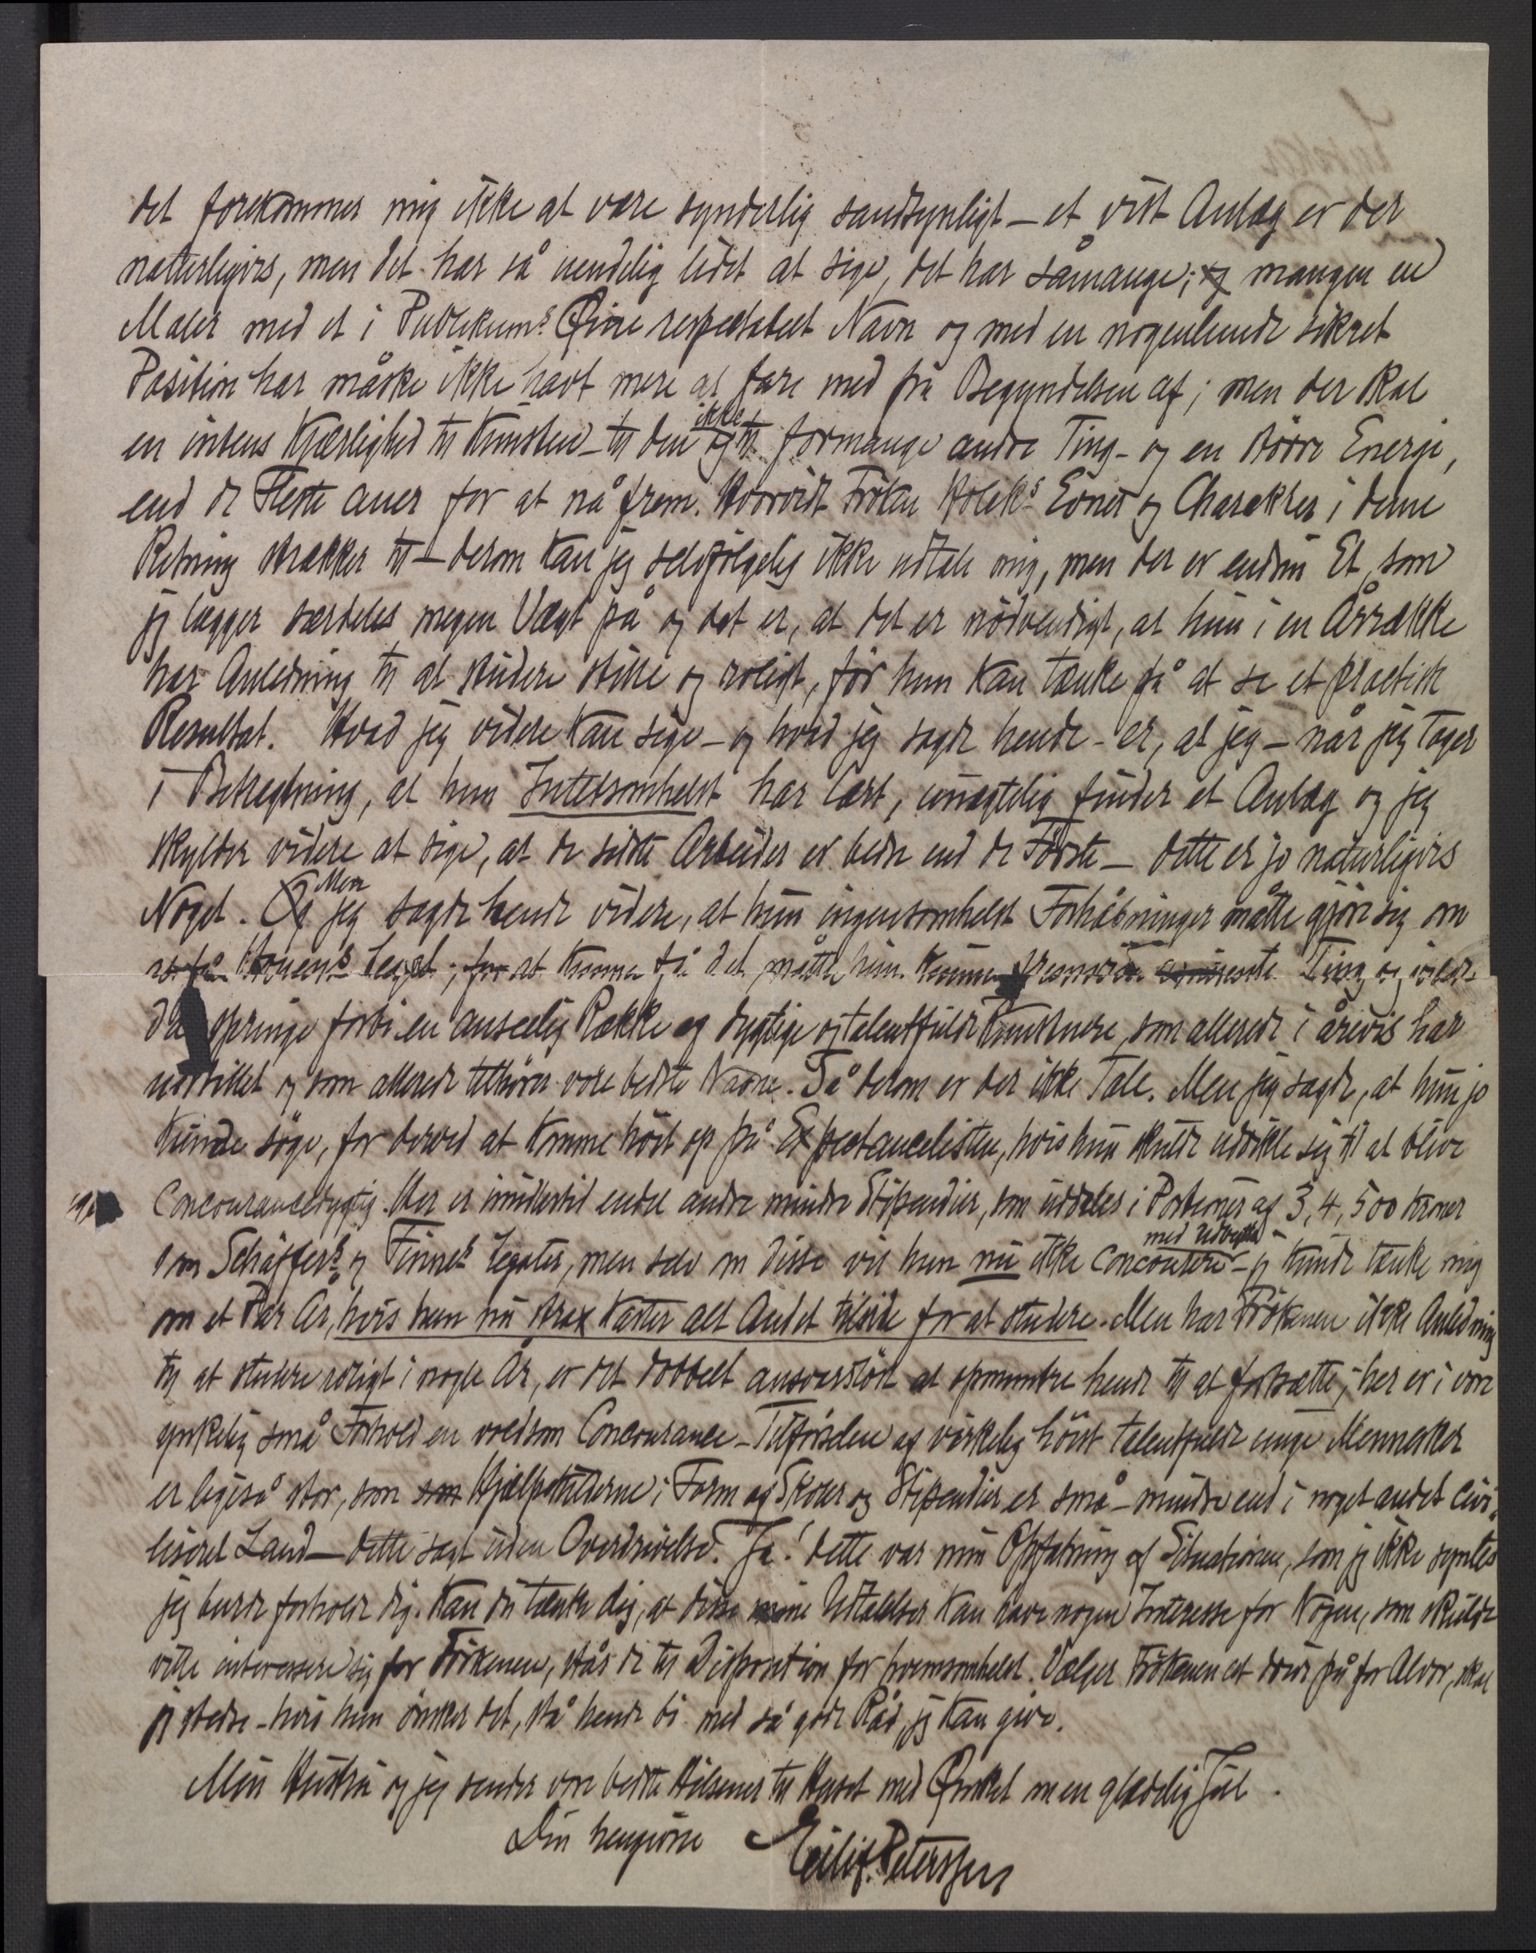 det forekommer mig ikke at være synderlig sandsynligt – et vist Anlæg er der
naturligvis, men det har så uendelig lidet at sige, det har såmange; og mangen en
Maler med et i Publikums Øine respektabelt Navn og med en nogenlunde sikret
Position har måske ikke havt mere at fare med på Begyndelsen af; men der skal
en intens Kjærlighed til Kunsten – til den og ikke til formange andre Ting – og en större Energi,
end de Fleste aner for at nå frem. Hvorvidt Fröken Holcks Evner og Charakter i denne
Retning strækker til – derom kan jeg selvfölgelig ikke udtale mig, men der er endnu Et, som
jeg lægger særdeles megen Vægt på og det er, at det er nödvendigt, at hun i en Årrække
har Anledning til at studere stille og roligt, för hun kan tænke på at se et practisk
Resultat. Hvad jeg videre kan sige – og hvad jeg sagde hende – er, at jeg – når jeg tager
i Betragtning, at hun Intetsomhelst har lært, unægtelig finder et Anlæg og jeg
skylder videre at sige, at de sidste Arbeider er bedre end de Förste – dette er jo naturligvis
Noget. Og Men jeg sagde hende videre, at hun ingensomhelst Forhåbninger måtte gjöre sig om
at få Legat; for at kunne få det måtte hun kunne Ting og vilde
da springe forbi en anseelig Række af dygtige og talentfulde Kunstnere, som allerede i årevis har
udstillet og som allerede tilhörer vore bedste Navne. Så derom er der ikke Tale. Men jeg sagde, at hun jo
kunde söge, for derved at komme höit op på Expectancelisten, hvis hun skulde udvikle sig til at blive
Concourancedygtig. Der er imidlertid endel andre mindre Stipendier, som uddeles i Portioner af 3, 4, 500 Kroner
som Schäffers og Finnes Legater, men selv om disse vil hun nu ikke concourere med Udbytte – jeg kunde tænke mig
om et Par År, hvis hun nu strax kaster alt Andet tilside for at studere. Men har Frökenen ikke Anledning
til at studere roligt i nogle År, er det dobbelt ansvarslöst at opmuntre hende til at fortsætte; her er i vore
ynkelig små Forhold en voldsom Concourance – Tilförselen af virkelig höist talentfulde unge Mennesker
er ligeså stor, som som Hjælpekilderne i Form af Skoler og Stipendier er små – mindre end i noget andet civi-
liseret Land – dette sagt uden Overdrivelse. Ja! dette var min Opfatning af Situationen, som jeg ikke syntes
jeg burde forholde dig. Kan du tænke dig, at disse mine Udtalelser kan have nogen Interesse for Nogen, som skulde
ville interessere sig for Frökenen, står de til Disposition for hvemsomhelst. Vælger Frökenen at drive på for Alvor, skal
jeg stedse – hvis hun önsker det, stå hende bi med så gode Råd, jeg kan give.
Min Hustru og jeg sender vore bedste Hilsener til Huset med Önsket om en glædelig Jul.
Din hengivne Eilif Peterssen